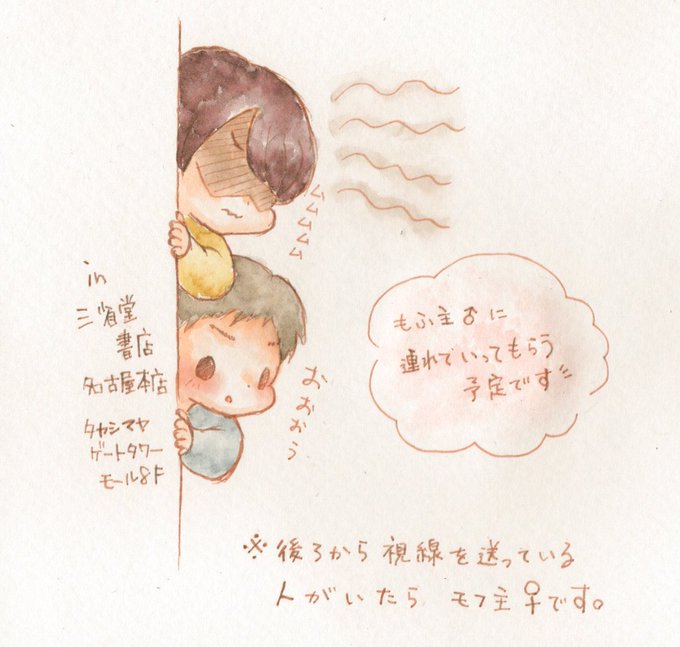 in
三省堂
書店
名古屋本店
タカシマヤ
ゲートタワー
モール8F
ムムムムム
おぉぉぅ
もふ主♂に
連れていってもらう
予定です
※後ろから視線を送っている
人がいたら モフ主♀です。